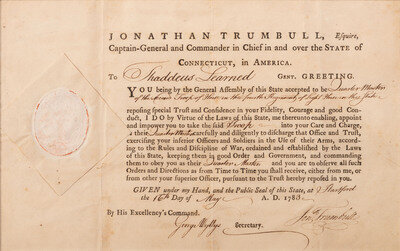 JONATHAN TRUMBULL, Esquire,
Captain-General and Commander in Chief in and over the STATE of
CONNECTICUT, in AMERICA.
To Thaddeus Learned GENT. GREETING.
YOU being by the General Assembly of this State accepted to be Quarter Master
of the Troop of Horse in the Regiment of Light Horse in this State
reposing special Trust and Confidence in your Fidelity, Courage and good Con-
duct, I DO by Virtue of the Laws of this State, me thereunto enabling, appoint
and impower you to take the said Troop into your Care and Charge,
as their Quarter Master carefully and diligently to discharge that Office and Trust,
exercising your inferior Officers and Soldiers in the Use of their Arms, according
to the Rules and Discipline of War, ordained and established by the Laws
of this State, keeping them in good Order and Government, and commanding
them to obey you as their Quarter Master and you are to observe all such
Orders and Directions as from Time to Time you shall receive, either from me, or
from other your superior Officer, pursuant to the Trust hereby reposed in you.
GIVEN under my Hand, and the Public Seal of this State, at Hartford
the 16th Day of May A. D. 178
By His Excellency's Command.
George Wyllys Secretary.
Jonth Trumbull